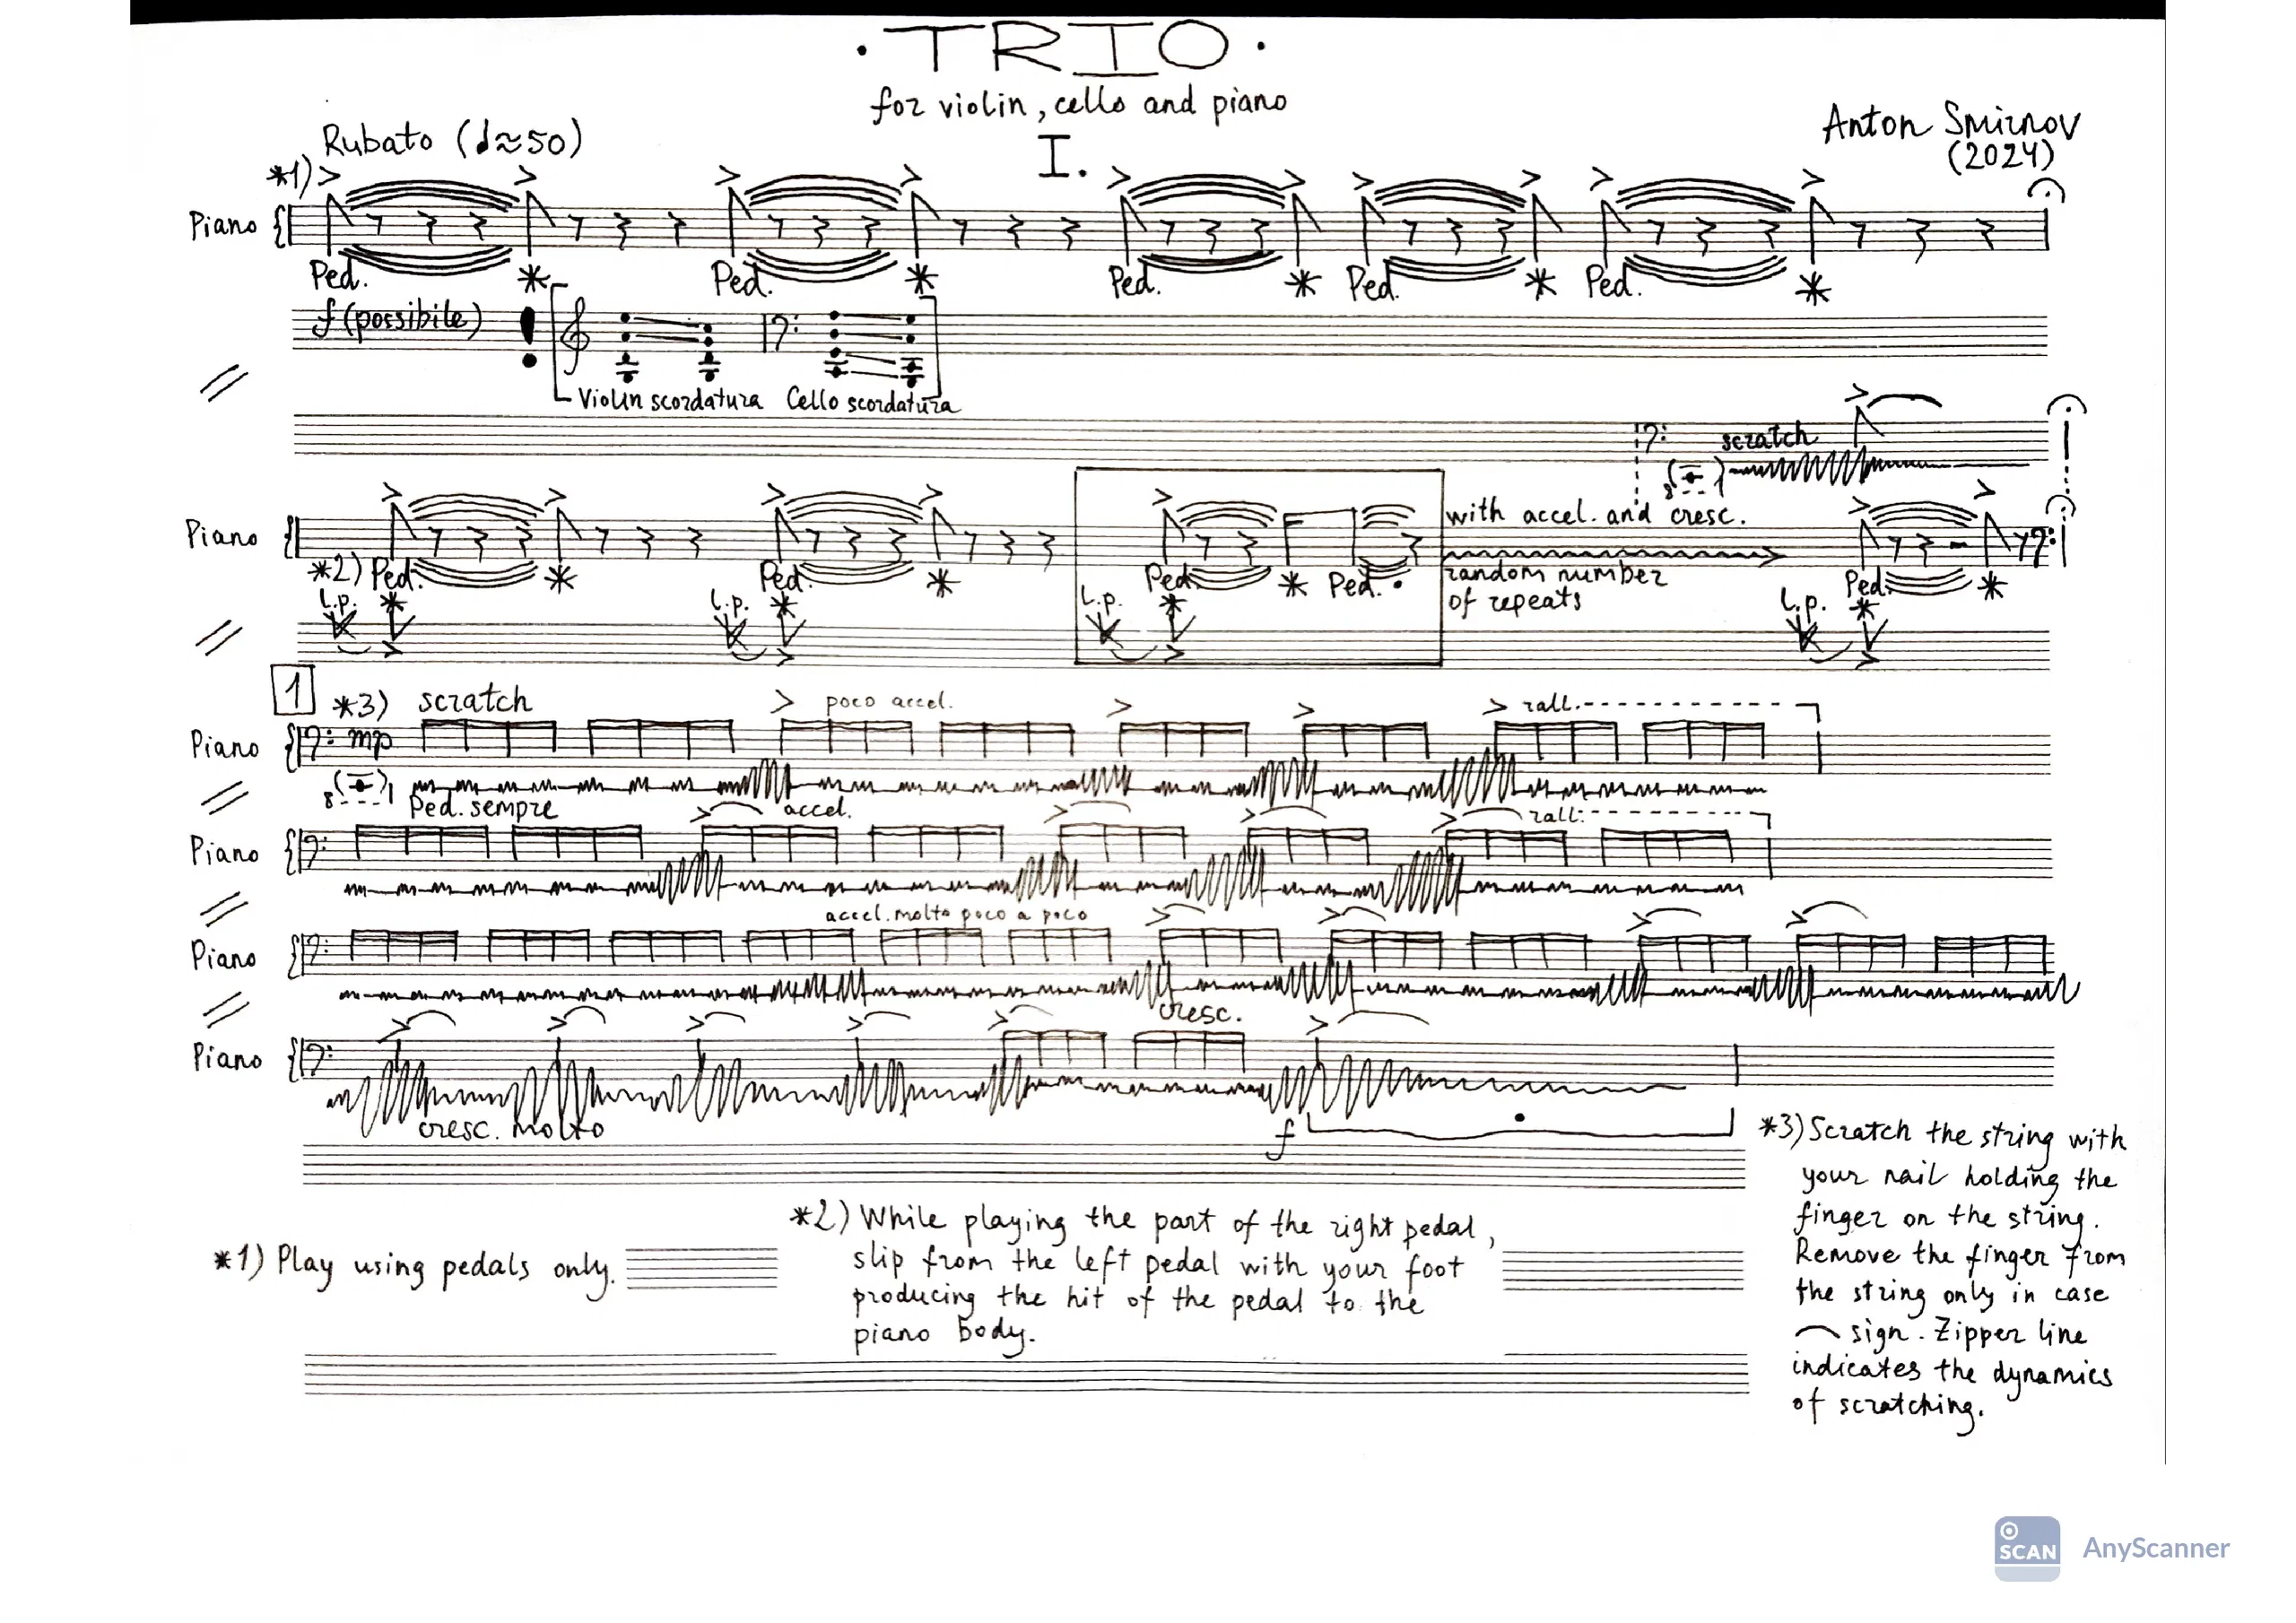 . TRIO .
for violin, cello and piano
I.
Anton Smirnov
(2024)
Rubato (♩≈50)
*1)
Piano
Ped. * Ped. * Ped. * Ped. * Ped. *
f (possibile)
Violin scordatura Cello scordatura
scratch
8
Piano
with accel. and cresc.
random number
of repeats
*2) Ped. * Ped. * Ped. * Ped. Ped. *
l.p. * l.p. * l.p. * l.p. *
1
*3) scratch poco accel. rall.
Piano mp
8
Ped. sempre
accel. rall.
Piano
accel. molto poco a poco
Piano
cresc.
Piano
cresc. molto
f
*1) Play using pedals only.
*2) While playing the part of the right pedal,
slip from the left pedal with your foot
producing the hit of the pedal to the
piano body.
*3) Scratch the string with
your nail holding the
finger on the string.
Remove the finger from
the string only in case
⌒ sign. Zipper line
indicates the dynamics
of scratching.
SCAN AnyScanner